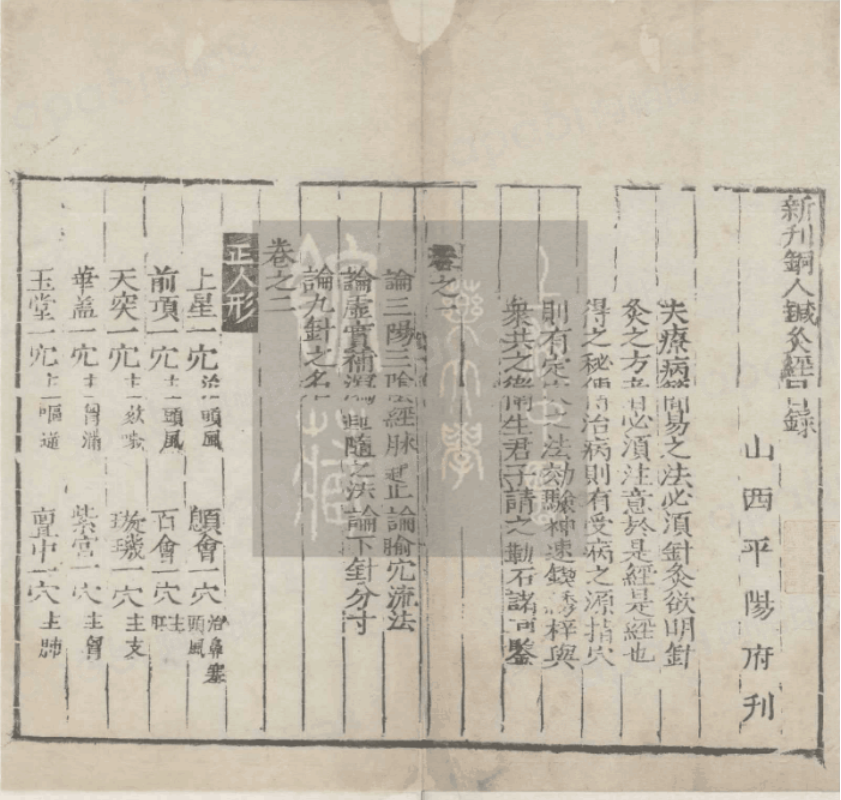 新刊銅人鍼灸經目錄
山西平陽府刊
夫療病簡易之法必須針灸欲明針
灸之方者必須注意於是經是經也
得之秘傳治病則有受病之源指穴
則有定穴之法効驗神速鋟誘梓與
衆共之衛生君子請之勒石諸同鑒
卷之
論三陽三陰經脉起止論腧穴流法
論虛實補瀉迎隨之法論下針分寸
論九針之名
卷之二
正人形
上星一穴治頭風 顖會一穴治鼻塞頭風
前項一穴主頭風 百會一穴主
天突一穴主欬嗽 璇璣一穴主支
華盖一穴主胷滿 紫宫一穴主胷
玉堂一穴主嘔逆 亶中一穴主肺